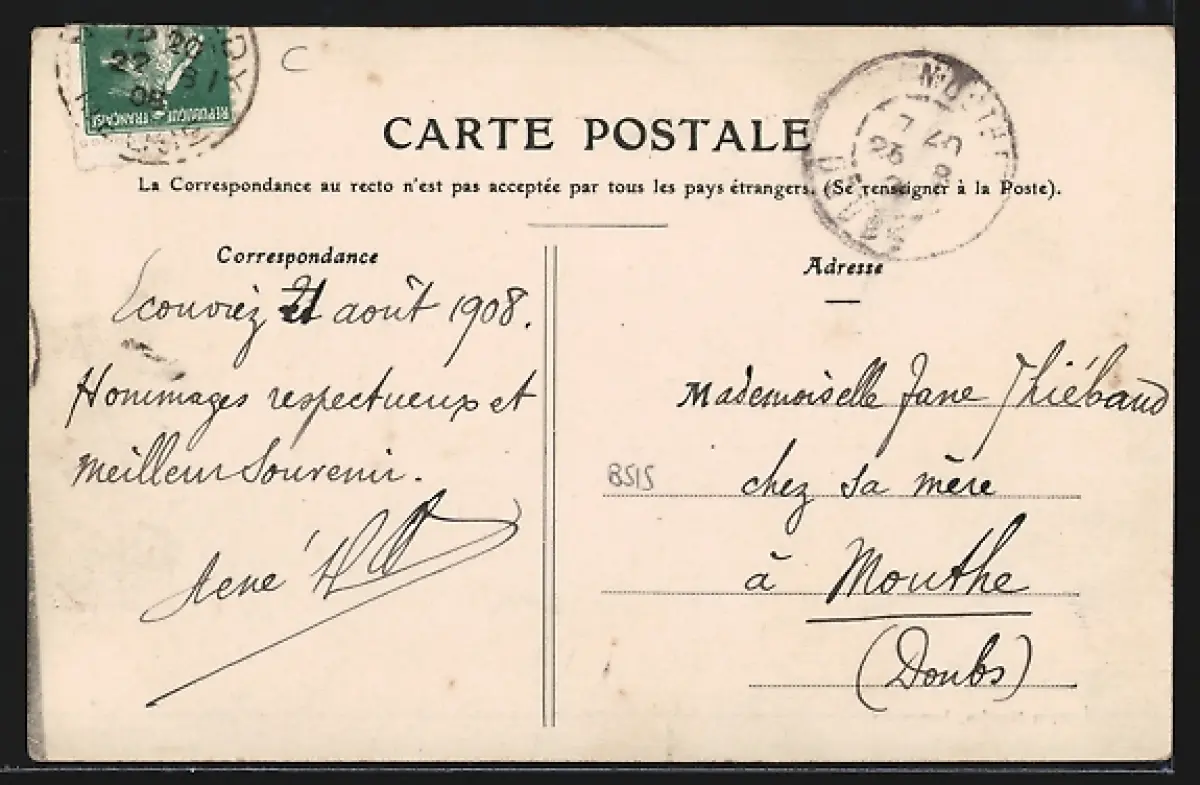 RÉPUBLIQUE FRANÇAISE
C
CARTE POSTALE
La Correspondance au recto n'est pas acceptée par tous les pays étrangers. (Se renseigner à la Poste).
MOUTHE
DOUBS
Correspondance
Ecouviez 21 août 1908.
Hommages respectueux et
meilleur Souvenir.
René
Adresse
Mademoiselle Jane Thiébaud
chez sa mère
à Mouthe
(Doubs)
BSIS